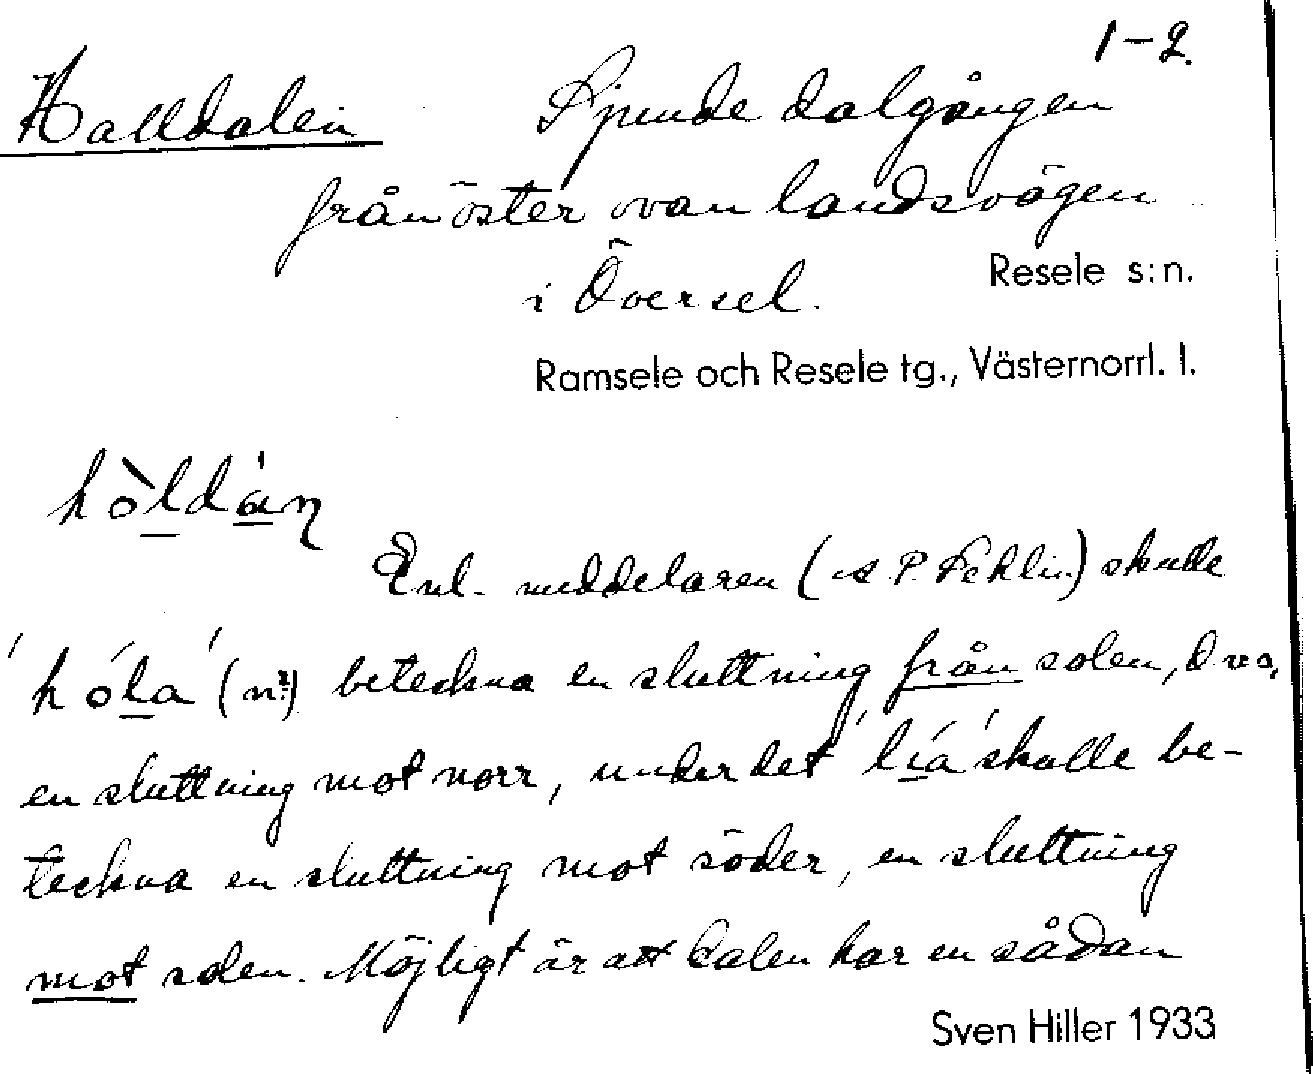 1-2.
Halldalen
Ljunde dalgången
från öster ovan landsvägen
i Översel.
Resele s:n.
Ramsele och Resele tg., Västernorrl. l.
hòldán
Enl. meddelaren ( P. ) skulle
'hóla' (n.?) beteckna en sluttning från solen, d.v.s,
en sluttning mot norr, under det 'lía' skulle be-
teckna en sluttning mot söder, en sluttning
mot solen. Möjligt är att dalen har en sådan
Sven Hiller 1933